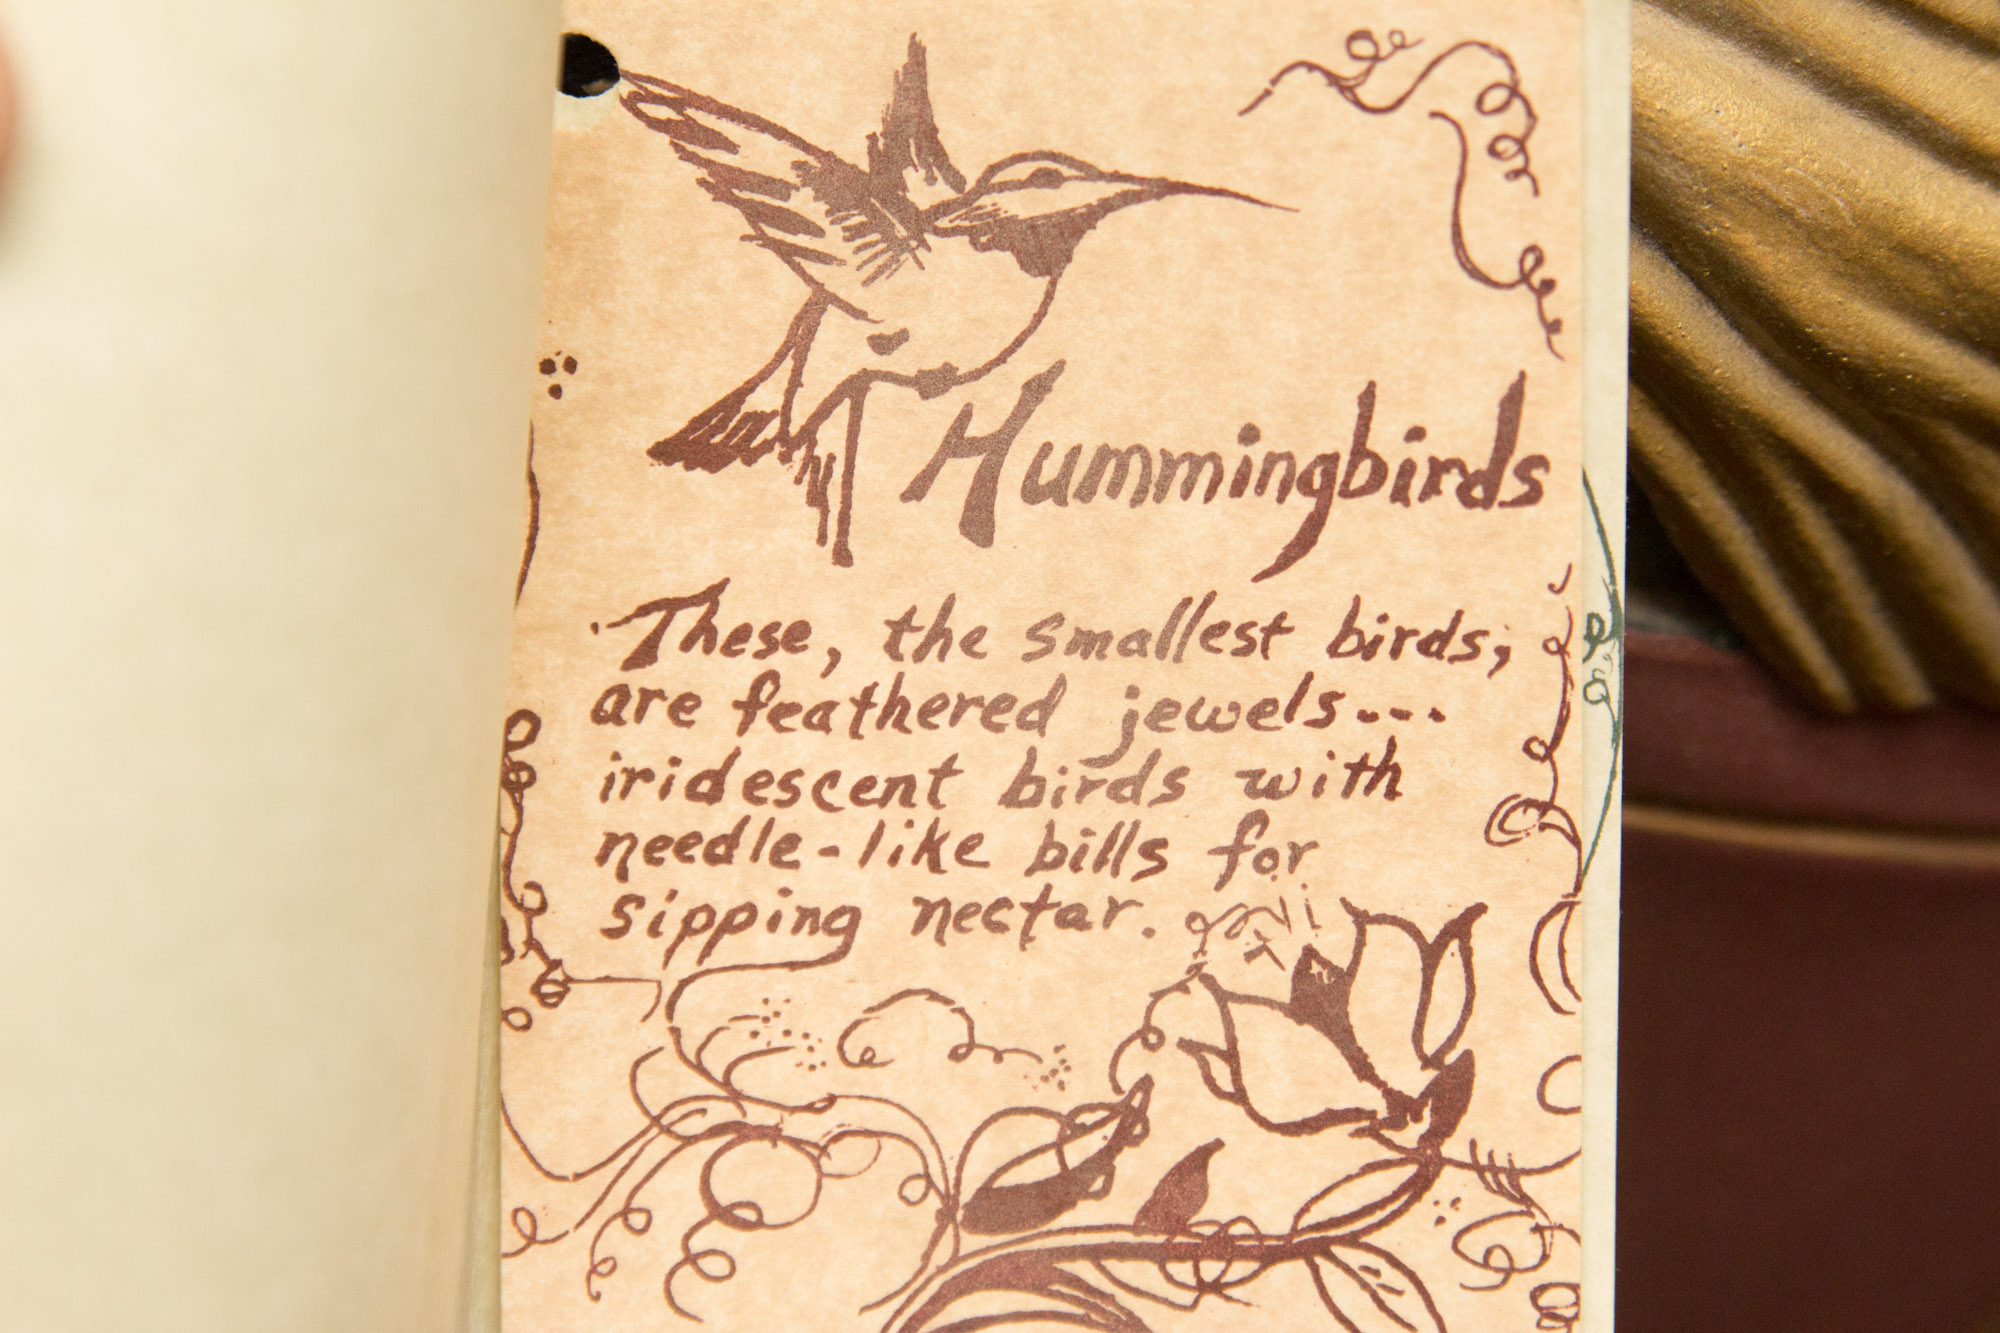 Hummingbirds
These, the smallest birds,
are feathered jewels...
iridescent birds with
needle-like bills for
sipping nectar.